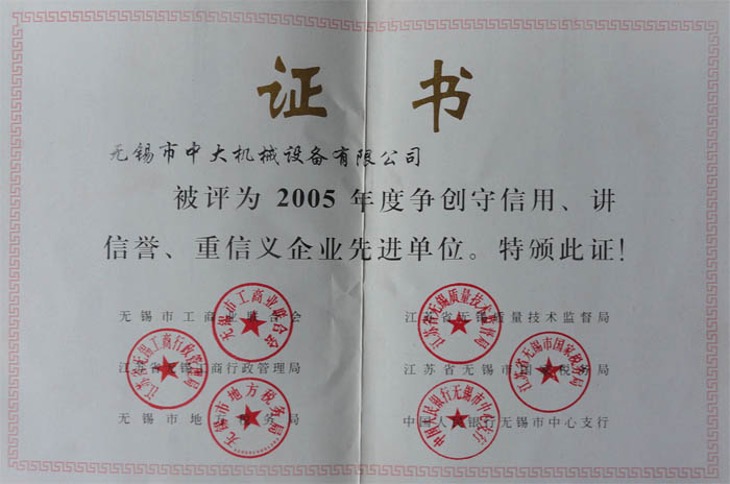 证 书
无锡市中大机械设备有限公司
被评为 2005 年度争创守信用、讲
信誉、重信义企业先进单位。特颁此证!
无锡市工商业联合会
江苏省无锡质量技术监督局
江苏省无锡工商行政管理局
江苏省无锡市国家税务局
无锡市地方税务局
中国人民银行无锡市中心支行
无锡市工商业联合会
江苏省无锡质量技术监督局
江苏省无锡工商行政管理局
江苏省无锡市国家税务局
无锡市地方税务局
中国人民银行无锡市中心支行